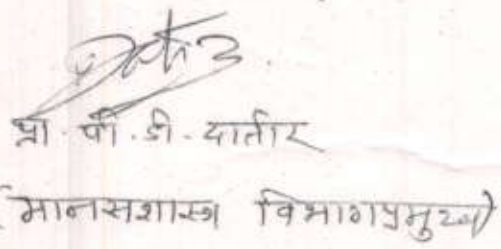 प्रा. पी. डी. दातीर
(मानसशास्त्र विभागप्रमुख)